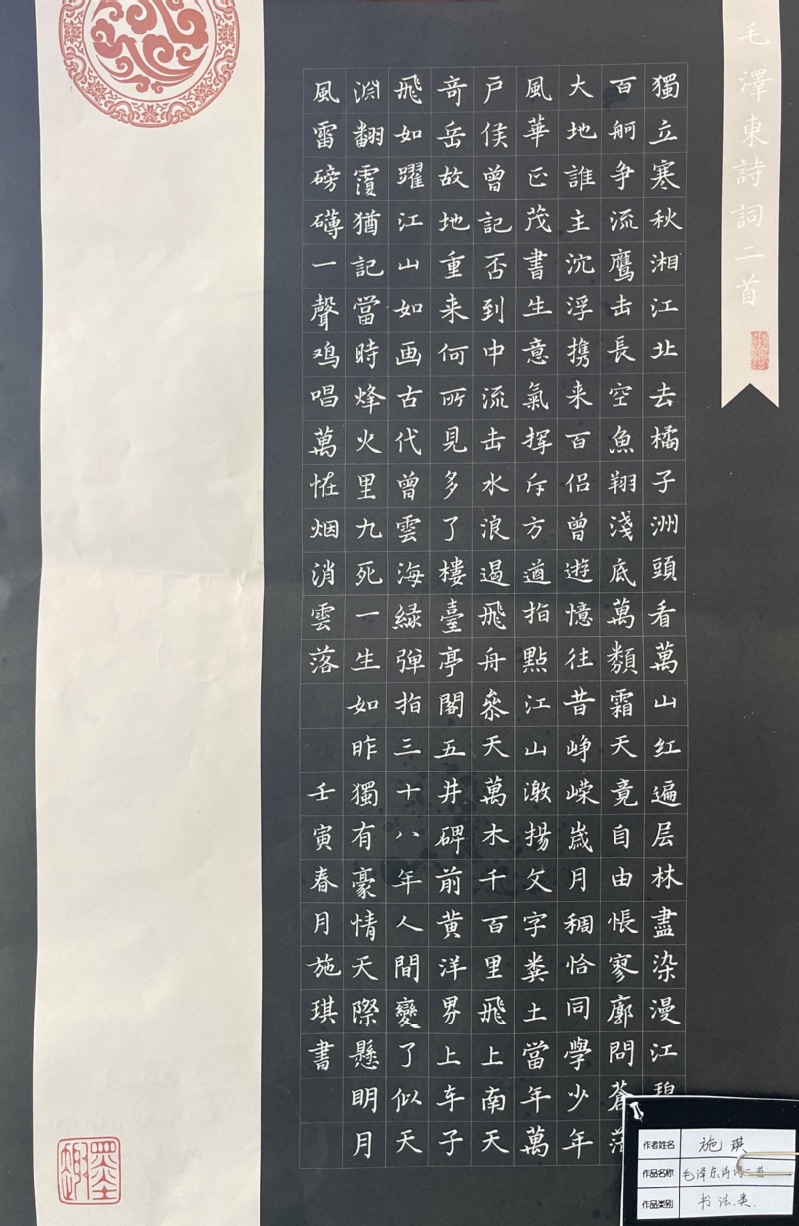 毛澤東詩詞二首
獨立寒秋湘江北去橘子洲頭看萬山紅遍层林盡染漫江碧
百舸争流鹰击長空魚翔淺底萬類霜天竟自由悵寥廓問蒼茫
大地誰主沉浮携来百侣曾遊憶往昔峥嵘嵗月稠恰同學少年
風華正茂書生意氣挥斥方遒指點江山激揚文字粪土當年萬
户侯曾記否到中流击水浪遏飛舟叅天萬木千百里飛上南天
奇岳故地重来何所見多了樓臺亭閣五井碑前黄洋界上车子
飛如躍江山如画古代曾雲海緑弹指三十八年人間變了似天
淵翻覆猶記當時烽火里九死一生如昨獨有豪情天際懸明月
風雷磅礴一聲鸡唱萬怪烟消雲落 壬寅春月施琪書
墨趣
作者姓名 施琪
作品名称 毛泽东诗词二首
作品类别 书法类.